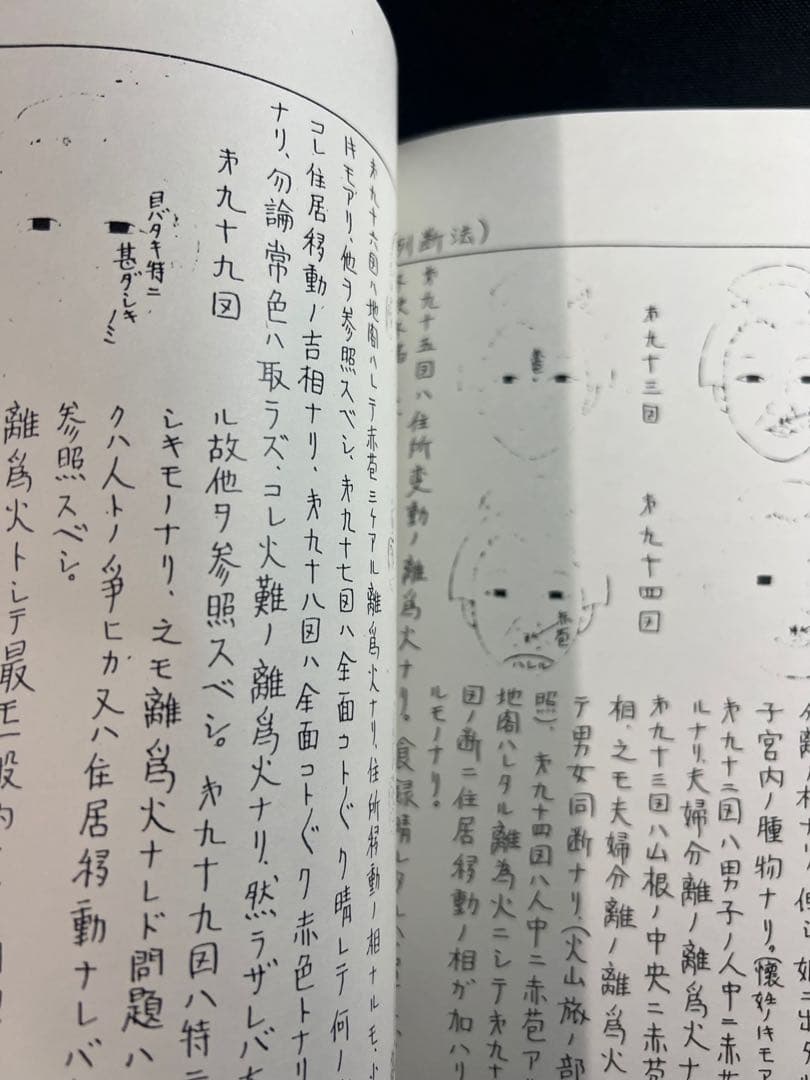 判断法)
㐧九十三図
㐧九十四図
赤苞
ハレル
子宮内ノ腫物ナリ。(懐妊ノキモア
㐧九十二図ハ男子ノ人中ニ赤苞
ルナリ、夫婦分離ノ離爲火ナ
㐧九十三図ハ山根ノ中央ニ赤苞
相、之モ夫婦分離ノ離爲火
テ男女同断ナリ、(火山旅ノ部
照)、㐧九十四図ハ人中ニ赤苞ア
地閣ハレタル離為火ニシテ㐧九十
図ノ断ニ住居移動ノ相ガ加ハリ
ルモノナリ。
㐧九十五図ハ住所変動ノ離爲火ナリ。食録晴レタル
㐧九十六図ハ地閣ハレテ赤苞ミケアル離爲火ナリ、住所移動ノ相ナルモ、火
キモアリ、他ヲ参照スベシ、㐧九十七図ハ全面コトぐク晴レテ何ノ
コレ住居移動ノ吉相ナリ、㐧九十八図ハ全面コトぐク赤色トナリ
ナリ、勿論常色ハ取ラズ、コレ火難ノ離爲火ナリ、然ラザレバ
㐧九十九図
目バタキ特ニ
甚ダシキ
ノミ
ル故他ヲ参照スベシ。㐧九十九図ハ特ニ
シキモノナリ、之モ離爲火ナレド問題ハ
クハ人トノ爭ヒカ又ハ住居移動ナレバ
参照スベシ。
離爲火トシテ最モ一般的